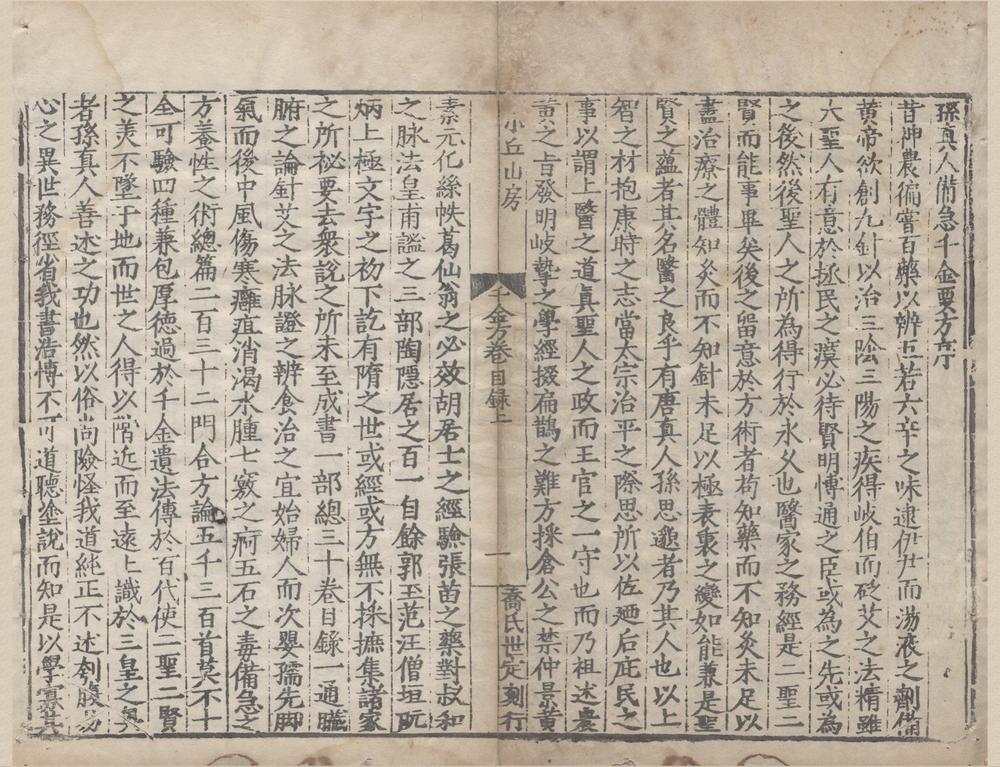 孫真人備急千金要方序
昔神農徧嘗百藥以辨五苦六辛之味逮伊尹而湯液之劑備
黃帝欲創九針以治三陰三陽之疾得岐伯而砭艾之法精雖
大聖人有意於拯民之瘼必待賢明愽通之臣或為之先或為
之後然後聖人之所為得行於永久也醫家之務經是二聖二
賢而能事畢矣後之留意於方術者苟知藥而不知灸未足以
盡治療之體知灸而不知針未足以極表裏之變如能兼是聖
賢之蘊者其名醫之良乎有唐真人孫思邈者乃其人也以上
智之材抱康時之志當太宗治平之際思所以佐廼后庇民之
事以謂上醫之道真聖人之政而王官之一守也而乃祖述農
黃之旨發明岐摯之學經掇扁鵲之難方採倉公之禁仲景黃
小丘山房
千金方卷目錄上
一
喬氏世定刻行
素元化緣帙葛仙翁之必效胡居士之經驗張苗之藥對叔和
之脉法皇甫謐之三部陶隱居之百一自餘郭玉范汪僧垣阮
炳上極文字之初下訖有隋之世或經或方無不採摭集諸家
之所祕要去衆說之所未至成書一部總三十卷目錄一通臟
腑之論針艾之法脉證之辨食治之宜始婦人而次嬰孺先脚
氣而後中風傷寒癰疽消渴水腫七竅之痾五石之毒備急之
方養性之術總篇二百三十二門合方論五千三百首莫不十
全可驗四種兼包厚德過於千金遺法傳於百代使二聖二賢
之美不墜于地而世之人得以階近而至遠上識於三皇之奧
者孫真人善述之功也然以俗尚險怪我道純正不述刳腹易
心之異世務徑省我書浩愽不可道聽塗說而知是以學寡其